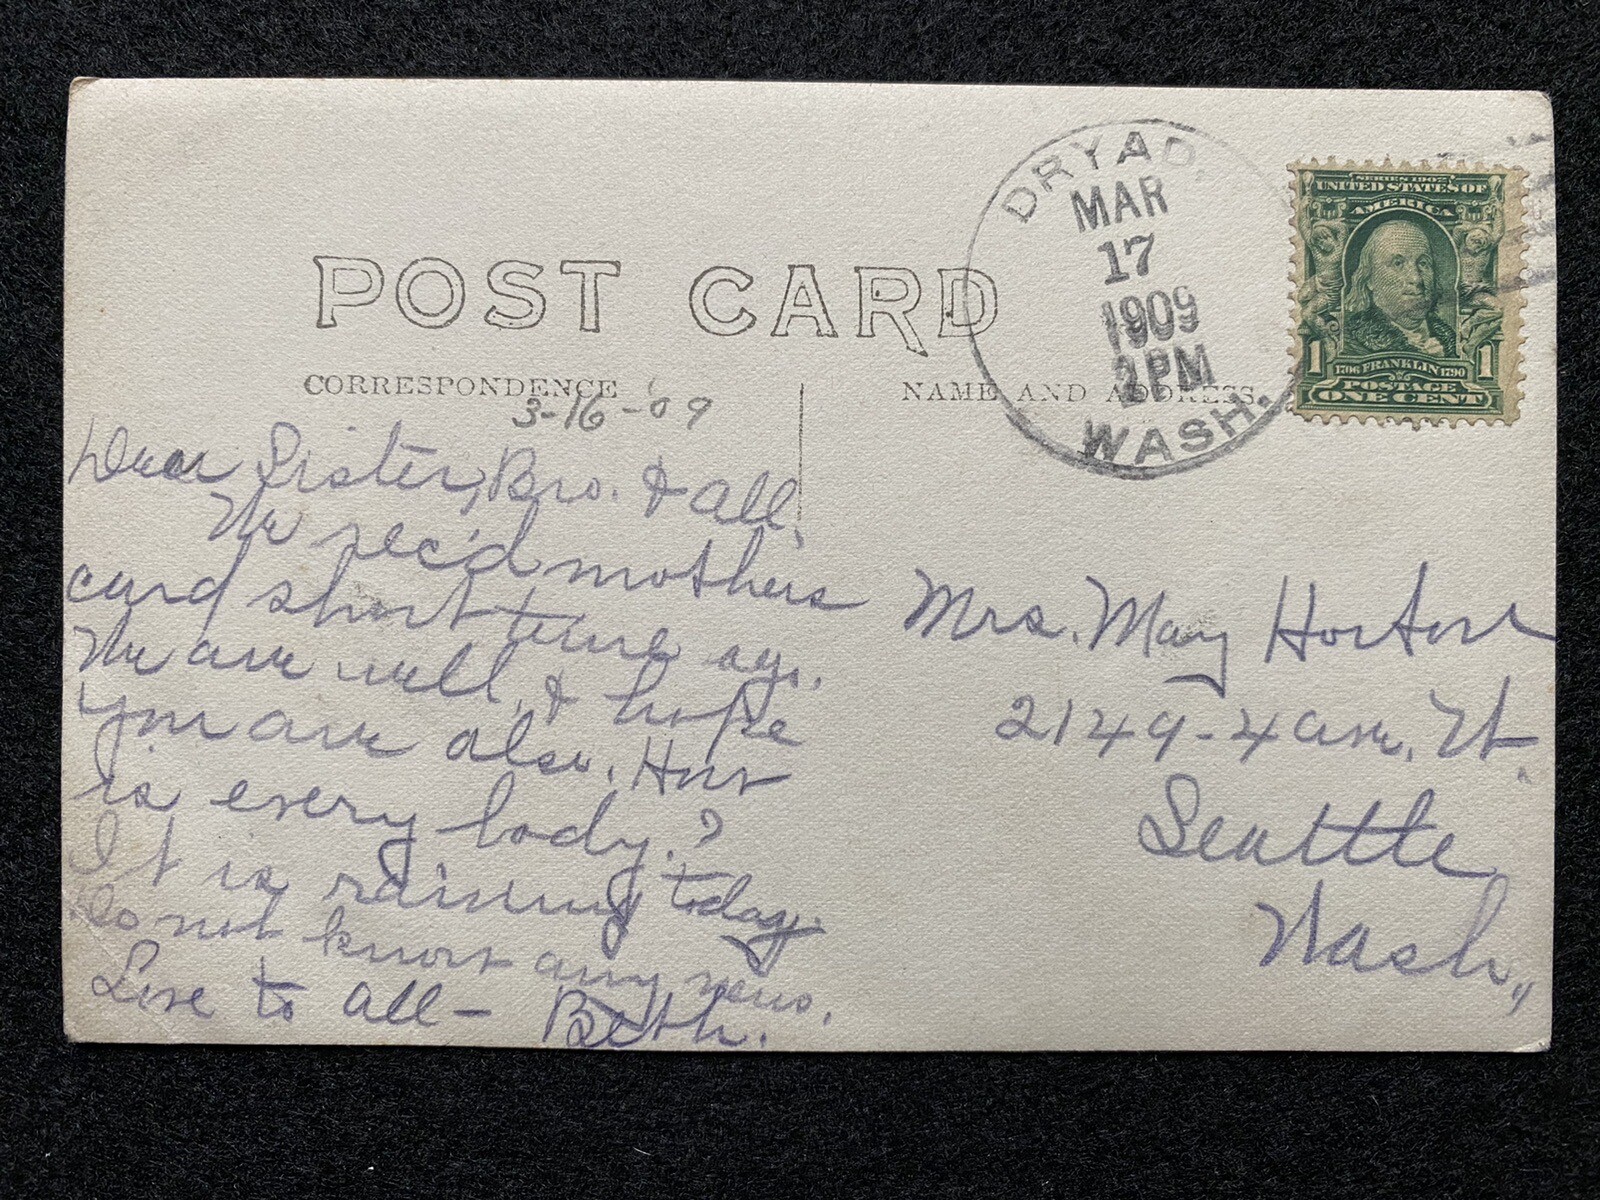 POST CARD
CORRESPONDENCE
NAME AND ADDRESS.
DRYAD,
MAR
17
1909
PM
WASH.
SERIES 1902
UNITED STATES OF
AMERICA
1 1
1706 FRANKLIN 1790
POSTAGE
ONE CENT
3-16-09
Dear Sister, Bro. & all,
We rec'd mothers
card short time ago.
We are well, & hope
you are also. How
is every body?
It is raining today.
Do not know any news.
Love to all - Beth.
Mrs. May Horton
2149-4 ave. W.
Seattle
Wash,,